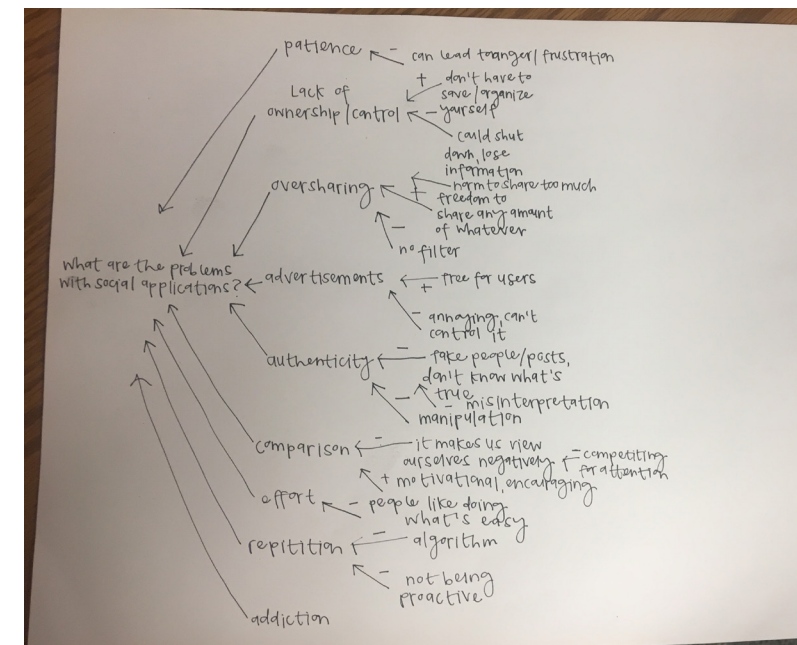 patience
- can lead to anger/frustration
Lack of
ownership/control
+ don't have to
save/organize
- yourself
could shut
down, lose
information
oversharing
norm to share too much
+ freedom to
share any amount
of whatever
-
no filter
What are the problems
with social applications?
advertisements
free for users
+
- annoying, can't
control it
authenticity
- fake people/posts,
don't know what's
true
- misinterpretation
- manipulation
comparison
- it makes us view
ourselves negatively
- competiting
for attention
+ motivational, encouraging
effort
- people like doing
what's easy
repitition
- algorithm
- not being
proactive
addiction